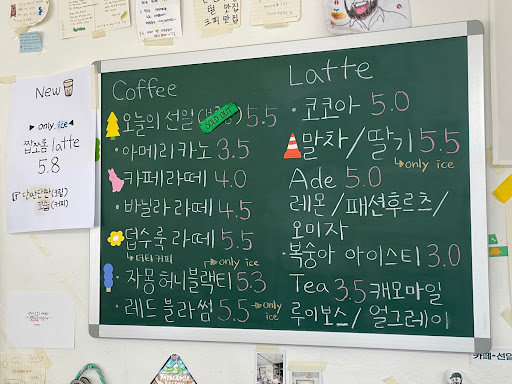 New
▸ only ice ◂
짭쪼롬 latte
5.8
Coffee
오늘의 선일 5.5
· 아메리카노 3.5
카페라떼 4.0
· 바닐라 라떼 4.5
덥수룩 라떼 5.5
↳ 더티커피
↱ only ice
· 자몽허니블랙티 5.3
· 레드 블라썸 5.5 → only ice
Latte
· 코코아 5.0
말차/딸기 5.5
↳ only ice
Ade 5.0
레몬/패션후르츠/
오미자
· 복숭아 아이스티 3.0
Tea 3.5 캐모마일
루이보스/얼그레이
카페-선일